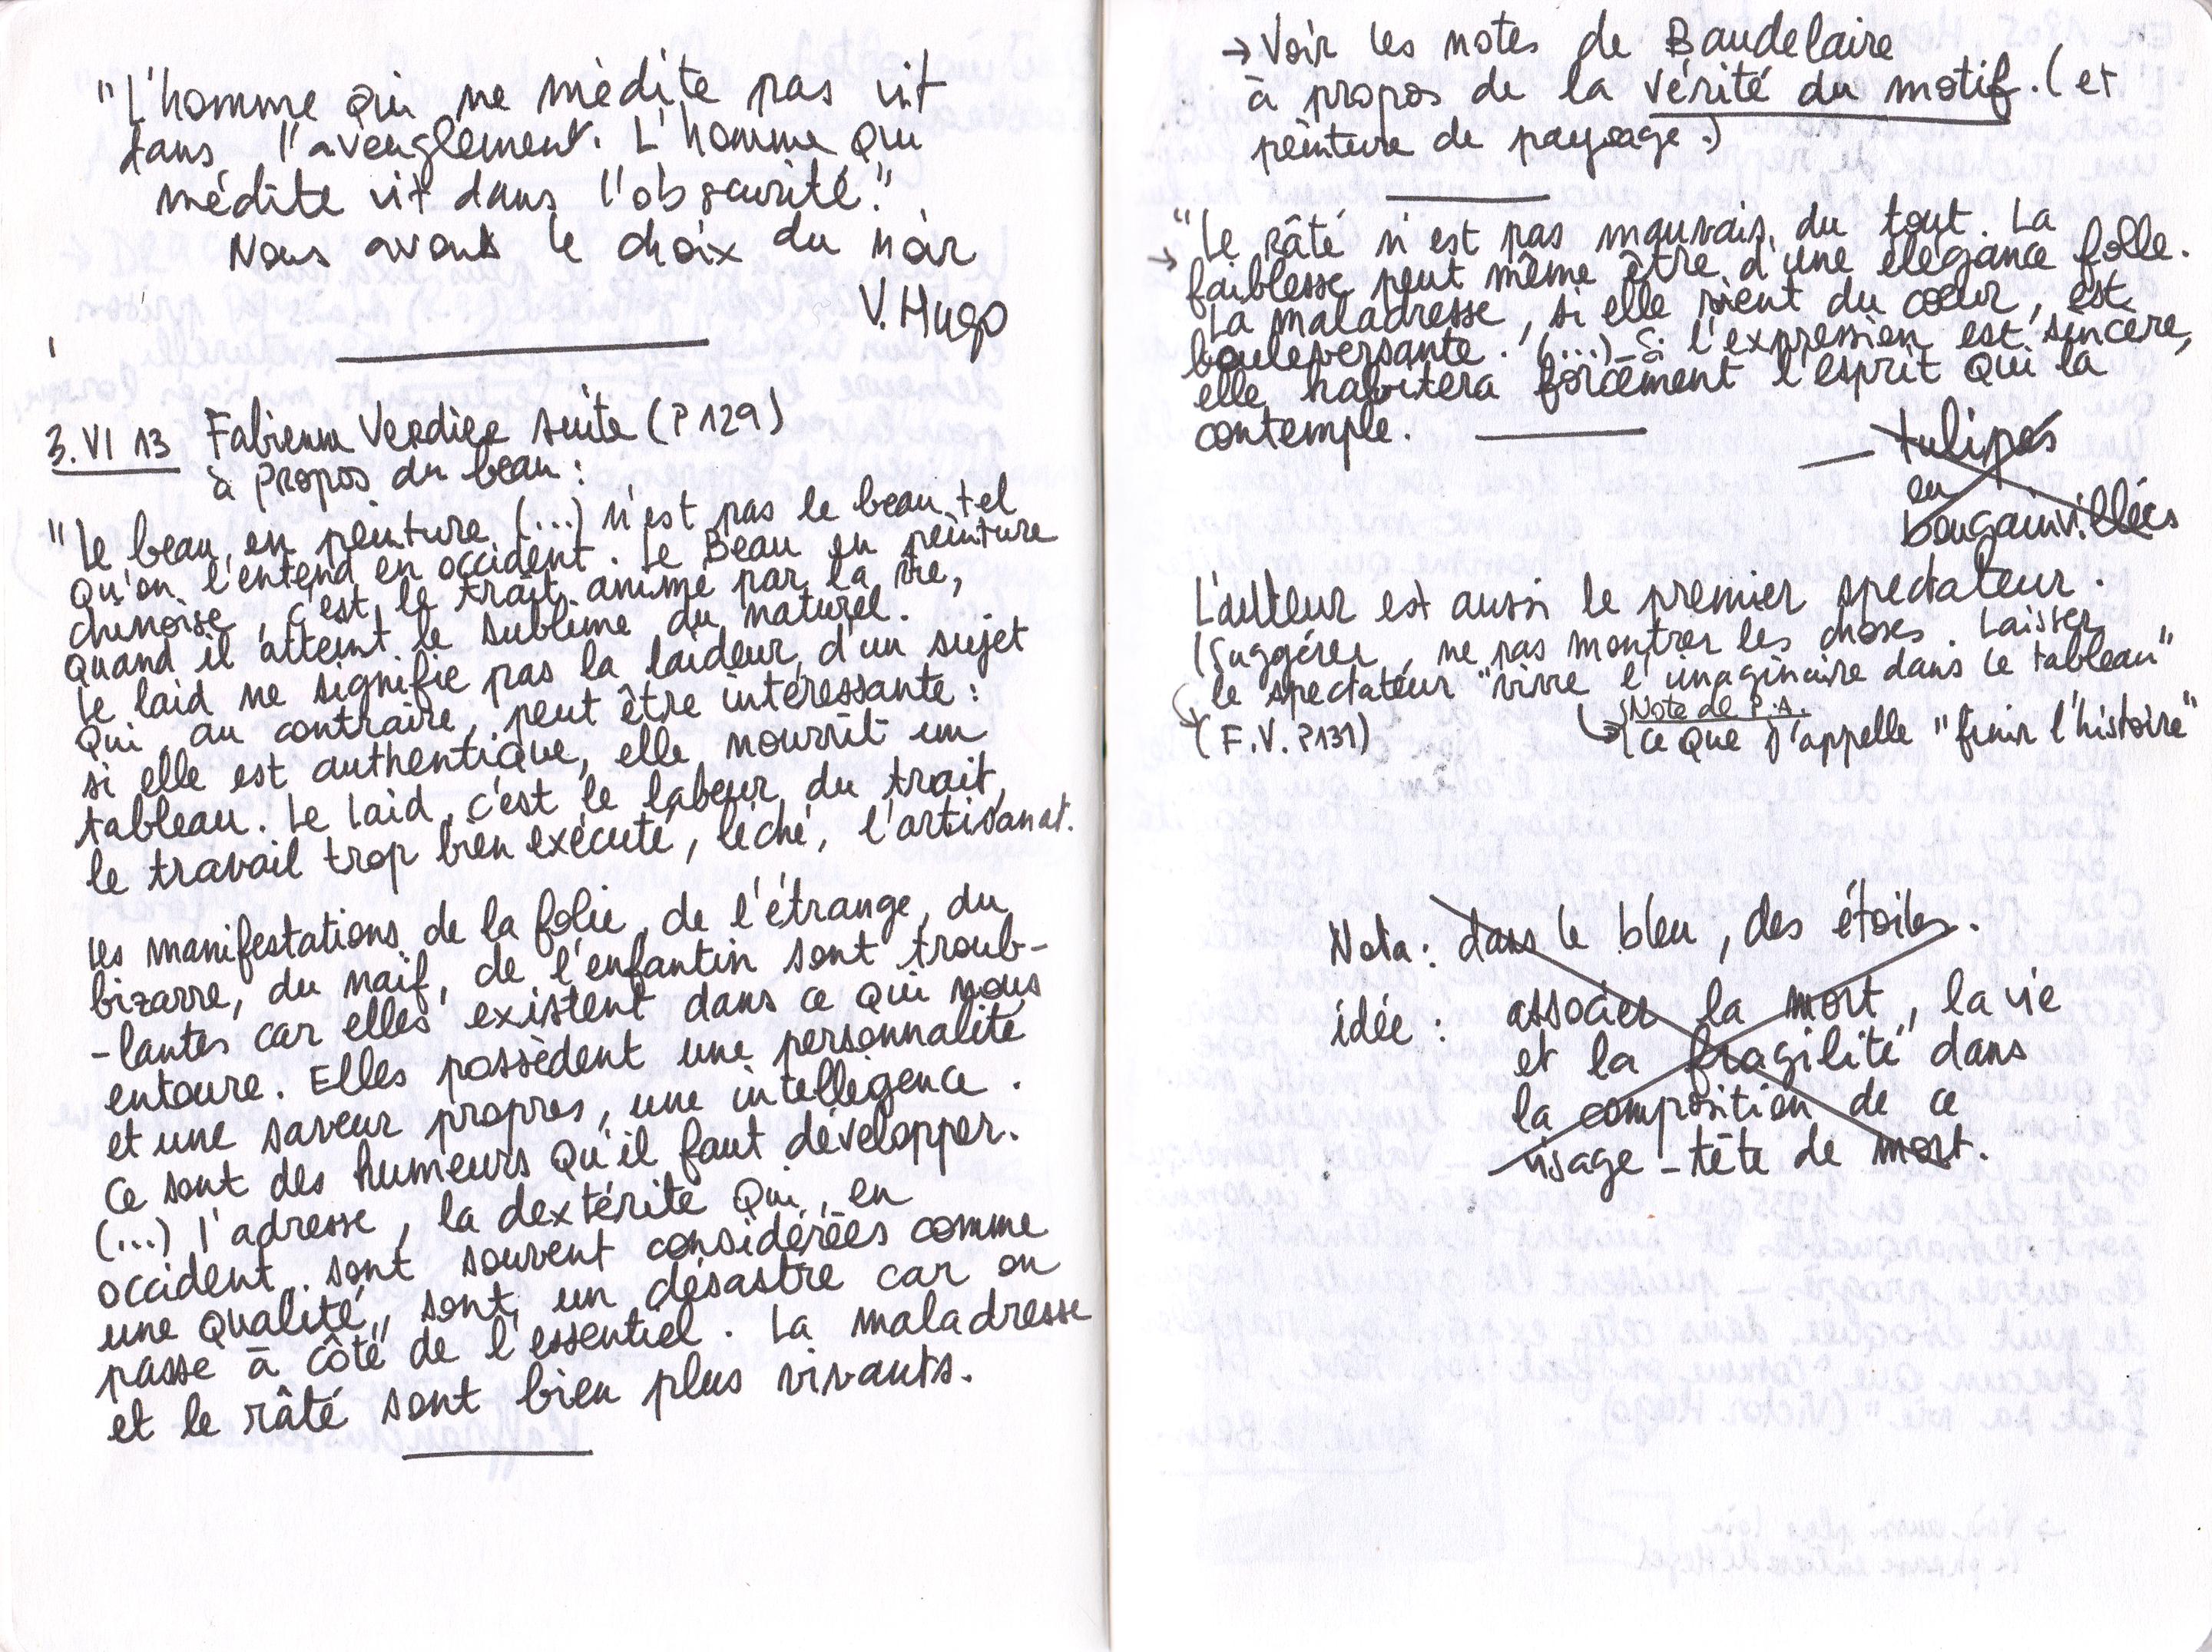 "L'homme qui ne médite pas vit
dans l'aveuglement. L'homme qui
médite vit dans l'obscurité."
Nous avons le choix du noir
V. Hugo
3. VI 13 Fabienne Verdier suite (P 129)
à propos du beau :
"Le beau, en peinture (...) n'est pas le beau tel
qu'on l'entend en occident. Le Beau en peinture
chinoise, c'est le trait animé par la vie,
quand il atteint le sublime du naturel.
Le laid ne signifie pas la laideur d'un sujet
qui au contraire, peut être intéressante :
si elle est authentique, elle nourrit un
tableau. Le laid, c'est le labeur du trait,
le travail trop bien exécuté, léché, l'artisanat.
Les manifestations de la folie, de l'étrange, du
bizarre, du naïf, de l'enfantin sont troub-
-lantes car elles existent dans ce qui nous
entoure. Elles possèdent une personnalité
et une saveur propres, une intelligence.
Ce sont des humeurs qu'il faut développer.
(...) l'adresse, la dextérité qui, en
occident, sont souvent considérées comme
une qualité, sont un désastre car on
passe à côté de l'essentiel. La maladresse
et le râté sont bien plus vivants.
→ Voir les notes de Baudelaire
à propos de la vérité du motif. (et
peinture de paysage.)
"Le râté n'est pas mauvais du tout. La
→ faiblesse peut même être d'une élégance folle.
La maladresse, si elle vient du cœur, est
bouleversante. (...) Si l'expression est sincère,
elle habitera forcément l'esprit qui la
contemple.
— tulipes
en
bougainvillées
L'auteur est aussi le premier spectateur.
(Suggérer, ne pas montrer les choses. Laisser
le spectateur "vivre l'imaginaire dans le tableau"
(F.V. P131)
Note de P.A.
(ce que j'appelle "finir l'histoire"
Nota : dans le bleu, des étoiles.
idée : associer la mort, la vie
et la fragilité dans
la composition de ce
visage - tête de mort.